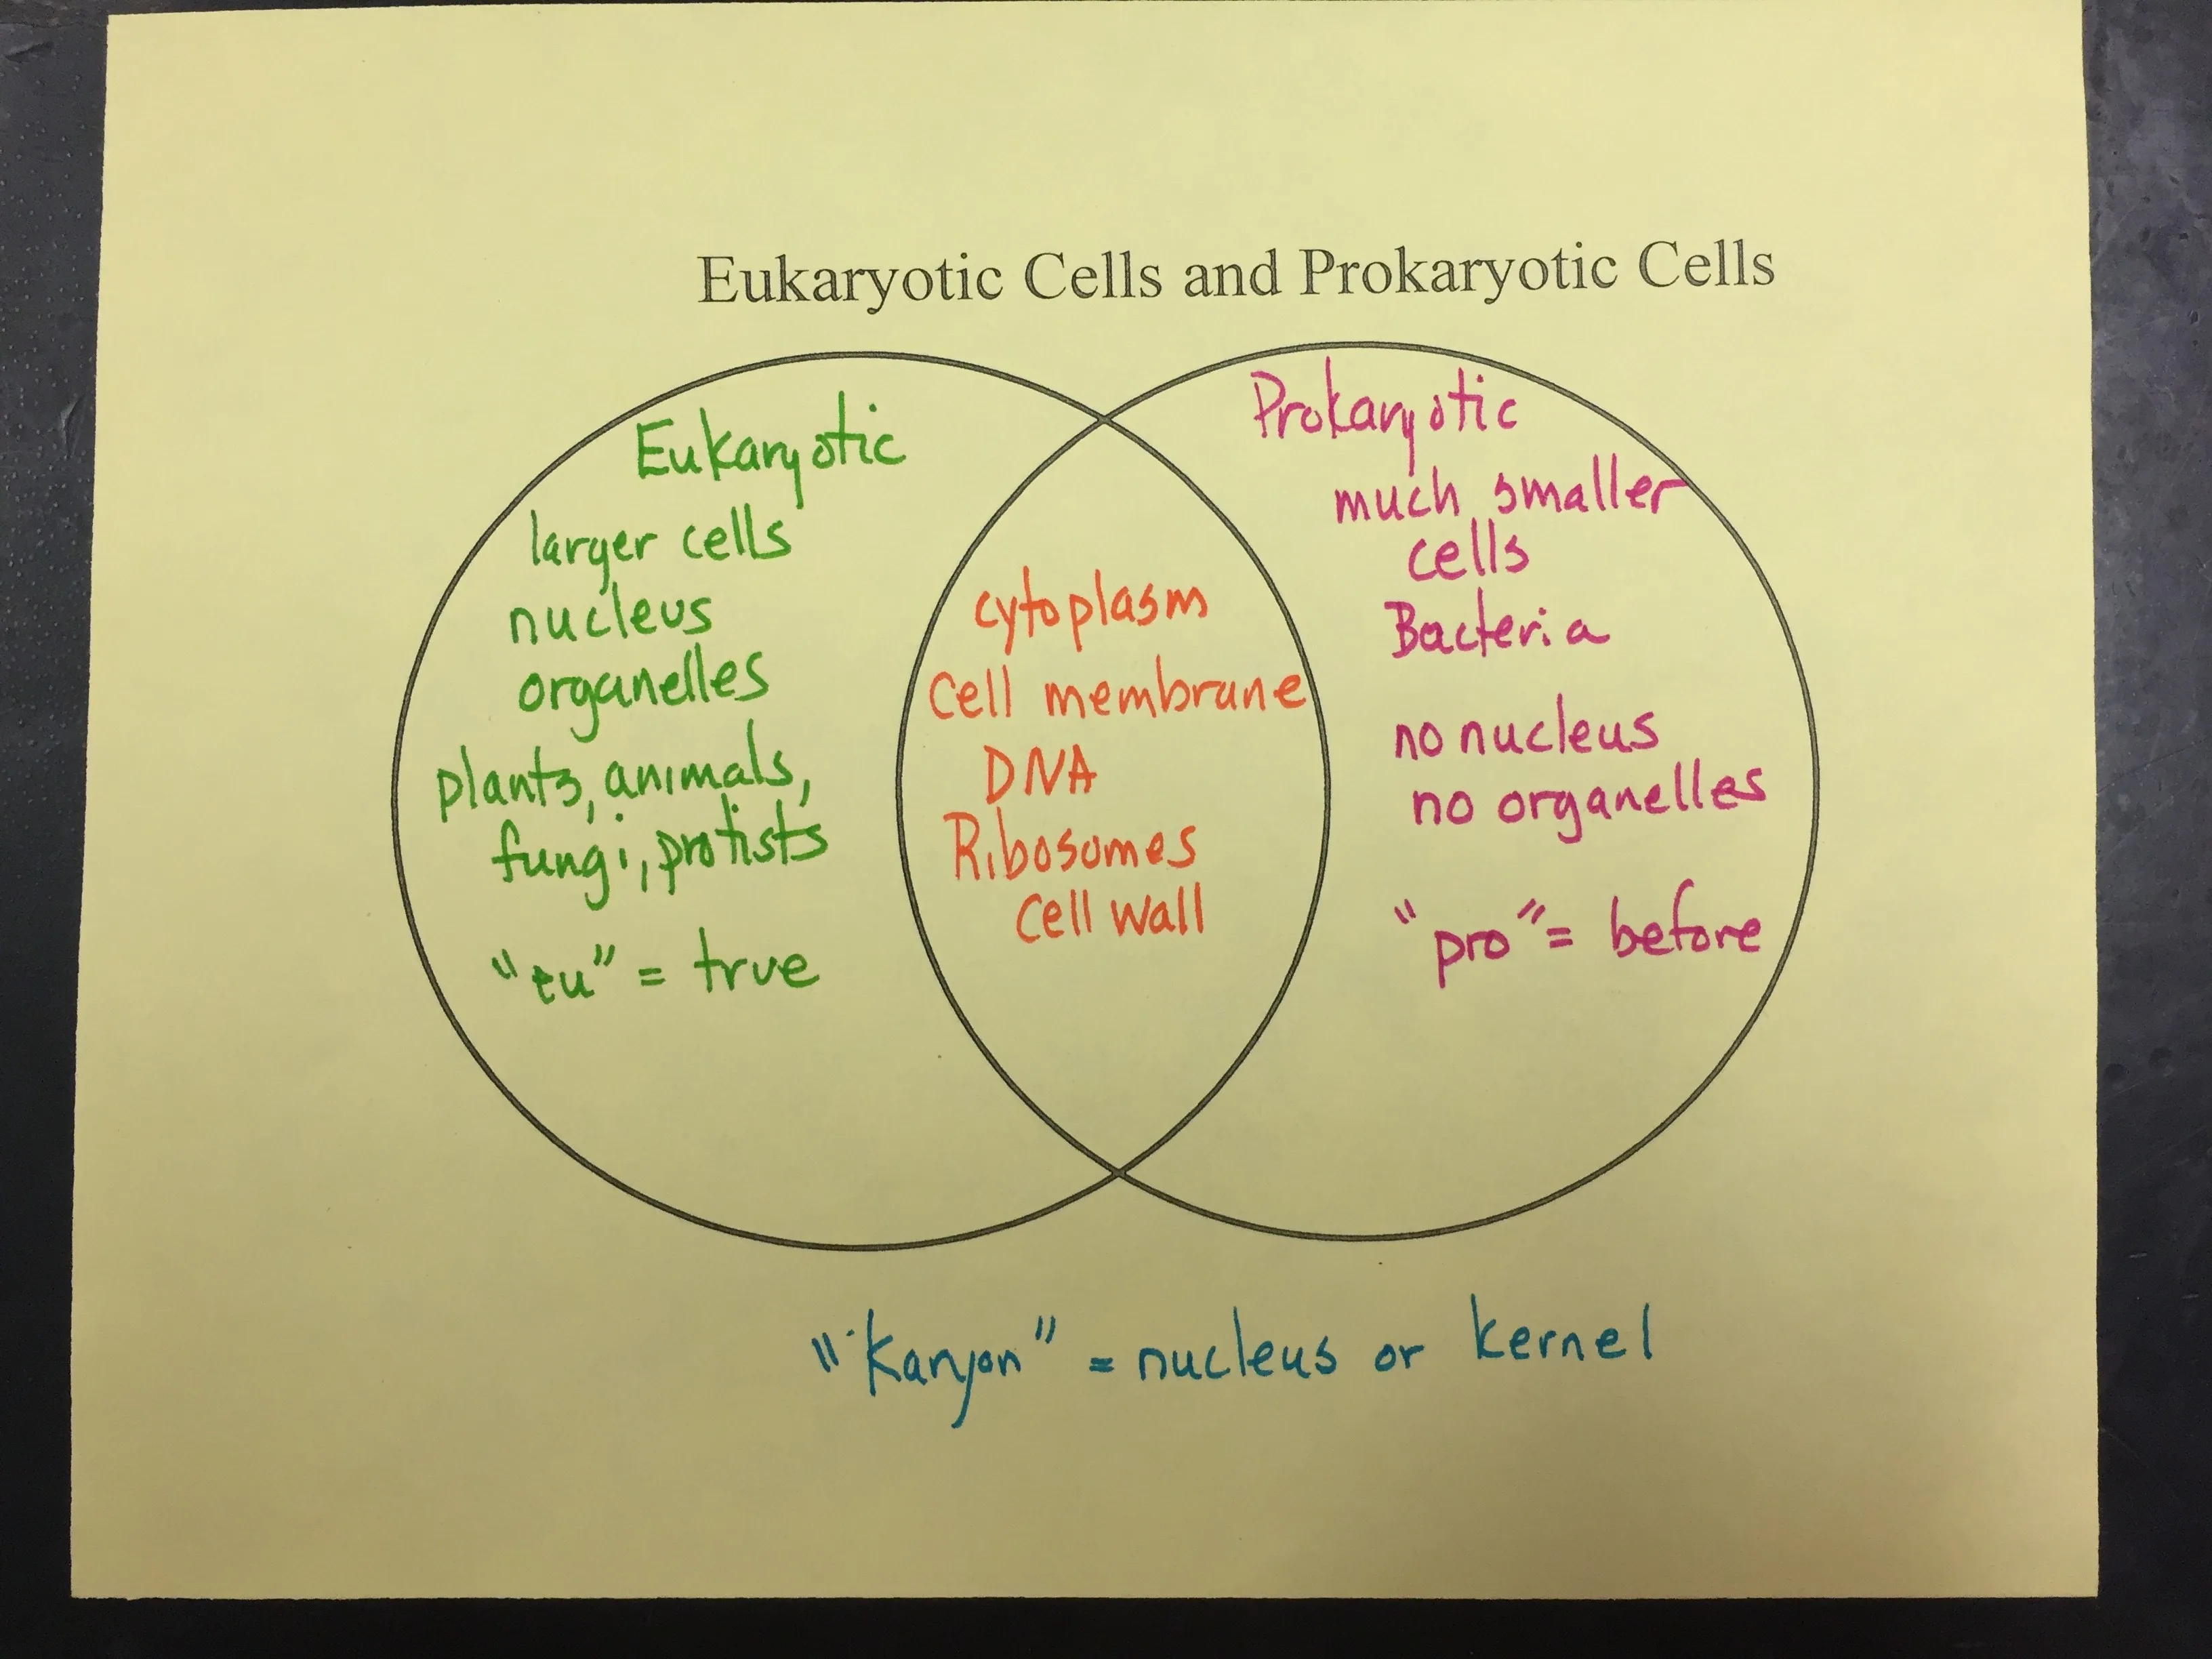 Eukaryotic Cells and Prokaryotic Cells
Eukaryotic
larger cells
nucleus
organelles
plants, animals,
fungi, protists
"eu" = true
cytoplasm
cell membrane
DNA
Ribosomes
cell wall
Prokaryotic
much smaller
cells
Bacteria
no nucleus
no organelles
"pro" = before
"Karyon" = nucleus or kernel